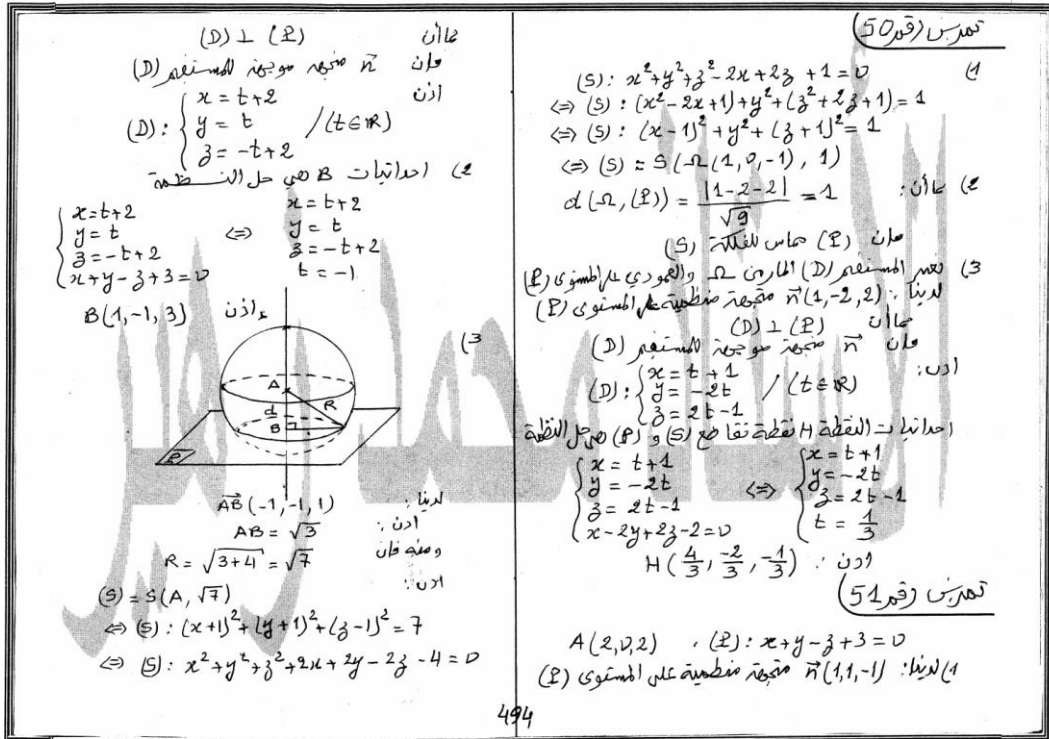 تمرين رقم 50
1) (S): x²+y²+z²-2x+2z+1=0
<=> (S): (x²-2x+1)+y²+(z²+2z+1)=1
<=> (S): (x-1)²+y²+(z+1)²=1
<=> (S) = S(Ω(1,0,-1), 1)
2) بما أن: d(Ω,(P)) = |1-2-2|/√9 = 1
فإن (P) مماس للفلكة (S)
3) نعتبر المستقيم (D) المار من Ω والعمودي على المستوى (P)
لدينا: n⃗(1,-2,2) متجهة منظمية على المستوى (P)
بما أن (D) ⊥ (P)
فإن n⃗ متجهة موجهة للمستقيم (D)
اذن: (D): { x=t+1
y=-2t /(t∈ℝ)
z=2t-1
احداثيات النقطة H نقطة تقاطع (S) و (P) هي حل النظمة
{ x=t+1 { x=t+1
y=-2t y=-2t
z=2t-1 <=> z=2t-1
x-2y+2z-2=0 t=1/3
اذن: H(4/3, -2/3, -1/3)
تمرين رقم 51
A(2,0,2) ، (P): x+y-z+3=0
1) لدينا: n⃗(1,1,-1) متجهة منظمية على المستوى (P)
بما أن (D) ⊥ (P)
فإن n⃗ متجهة موجهة للمستقيم (D)
اذن
(D): { x=t+2
y=t /(t∈ℝ)
z=-t+2
2) احداثيات B هي حل النظمة
{ x=t+2 x=t+2
y=t <=> y=t
z=-t+2 z=-t+2
x+y-z+3=0 t=-1
واذن B(1,-1,3)
3)
A
R
d
B
P
لدينا: AB⃗(-1,-1,1)
اذن: AB=√3
ومنه فان R=√(3+4)=√7
اذن:
(S)=S(A,√7)
<=> (S): (x+1)²+(y+1)²+(z-1)²=7
<=> (S): x²+y²+z²+2x+2y-2z-4=0
494